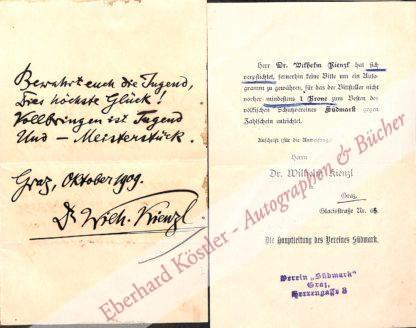 Bewahrt euch die Jugend,
Dies höchste Glück!
Vollbringen ist Tugend
Und – Meisterstück.
Graz, Oktober 1909.
Dr Wilh. Kienzl.
Herr Dr. Wilhelm Kienzl hat sich
verpflichtet, fernerhin keine Bitte um ein Auto-
gramm zu gewähren, für das der Bittsteller nicht
vorher mindestens 1 Krone zum Besten des
völkischen Schutzvereines Südmark gegen
Zahlschein entrichtet.
Anschrift für die Anweisung:
Herrn
Dr. Wilhelm Kienzl
Graz
Glacisstraße Nr.
Die Hauptleitung des Vereines Südmark.
Verein „Südmark"
Graz,
Herrengasse 3
Eberhard Köstler - Autographen & Bücher